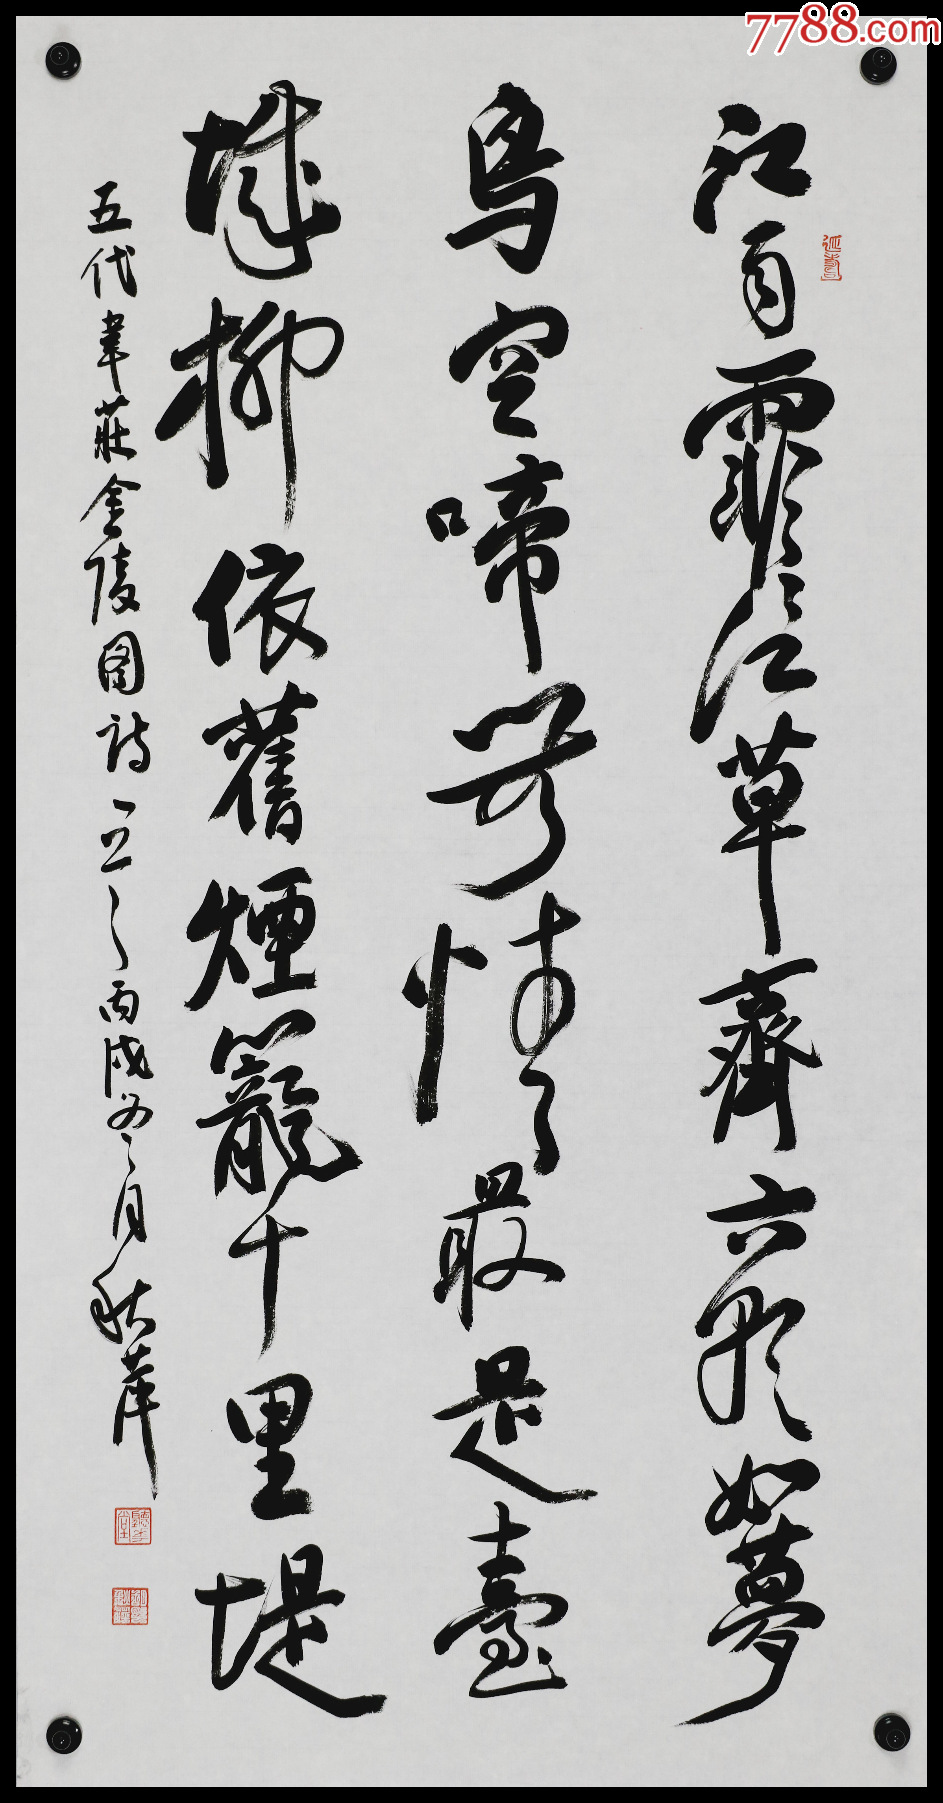 7788.com
江雨霏霏江草齊六朝如夢
鳥空啼無情最是臺
城柳依舊煙籠十里堤
五代韋莊金陵圖詩一首丙戌冬月秋萍
延壽